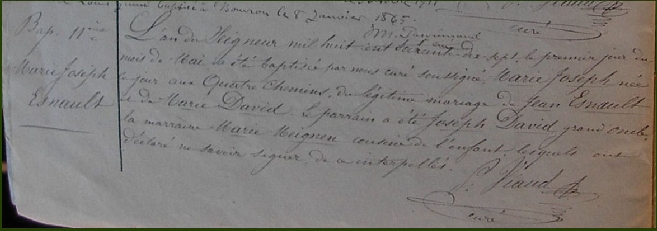 baptisé à Bourron le 8 Janvier 1865.
curé
Bap. 11ème
Marie Joseph
Esnault
L'an du Seigneur mil huit cent soixante dix-sept, le premier jour du
mois de Mai a été baptisée par nous curé soussigné Marie Joseph née
ce jour aux Quatre Chemins, du légitime mariage de Jean Esnault
et de Marie David. Le parrain a été Joseph David grand oncle,
la marraine Marie Meignen cousine de l'enfant lesquels ont
déclaré ne savoir signer, de ce interpellés.
Viaud
curé